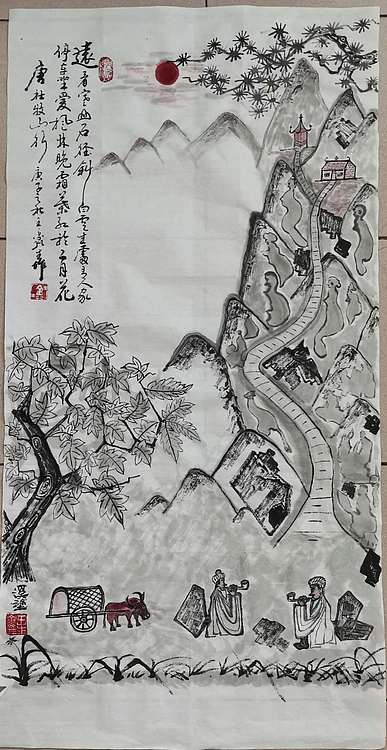 遠上寒山石径斜白雲生處有人家
停車坐愛楓林晚霜葉紅於二月花
唐杜牧山行